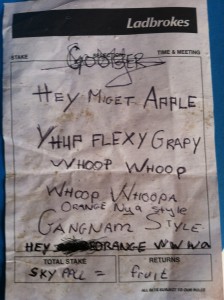 Ladbrokes
STAKE TIME & MEETING
HEY MIGET APPLE
YHUP FLEXY GRAPY
WHOOP WHOOP
WHOOP WHOOPA
ORANGE Nya Style
GANGNAM STYLE
HEY ORANGE W W W a
TOTAL STAKE RETURNS
SKY FALL = fruit
ALL BETS SUBJECT TO OUR RULES